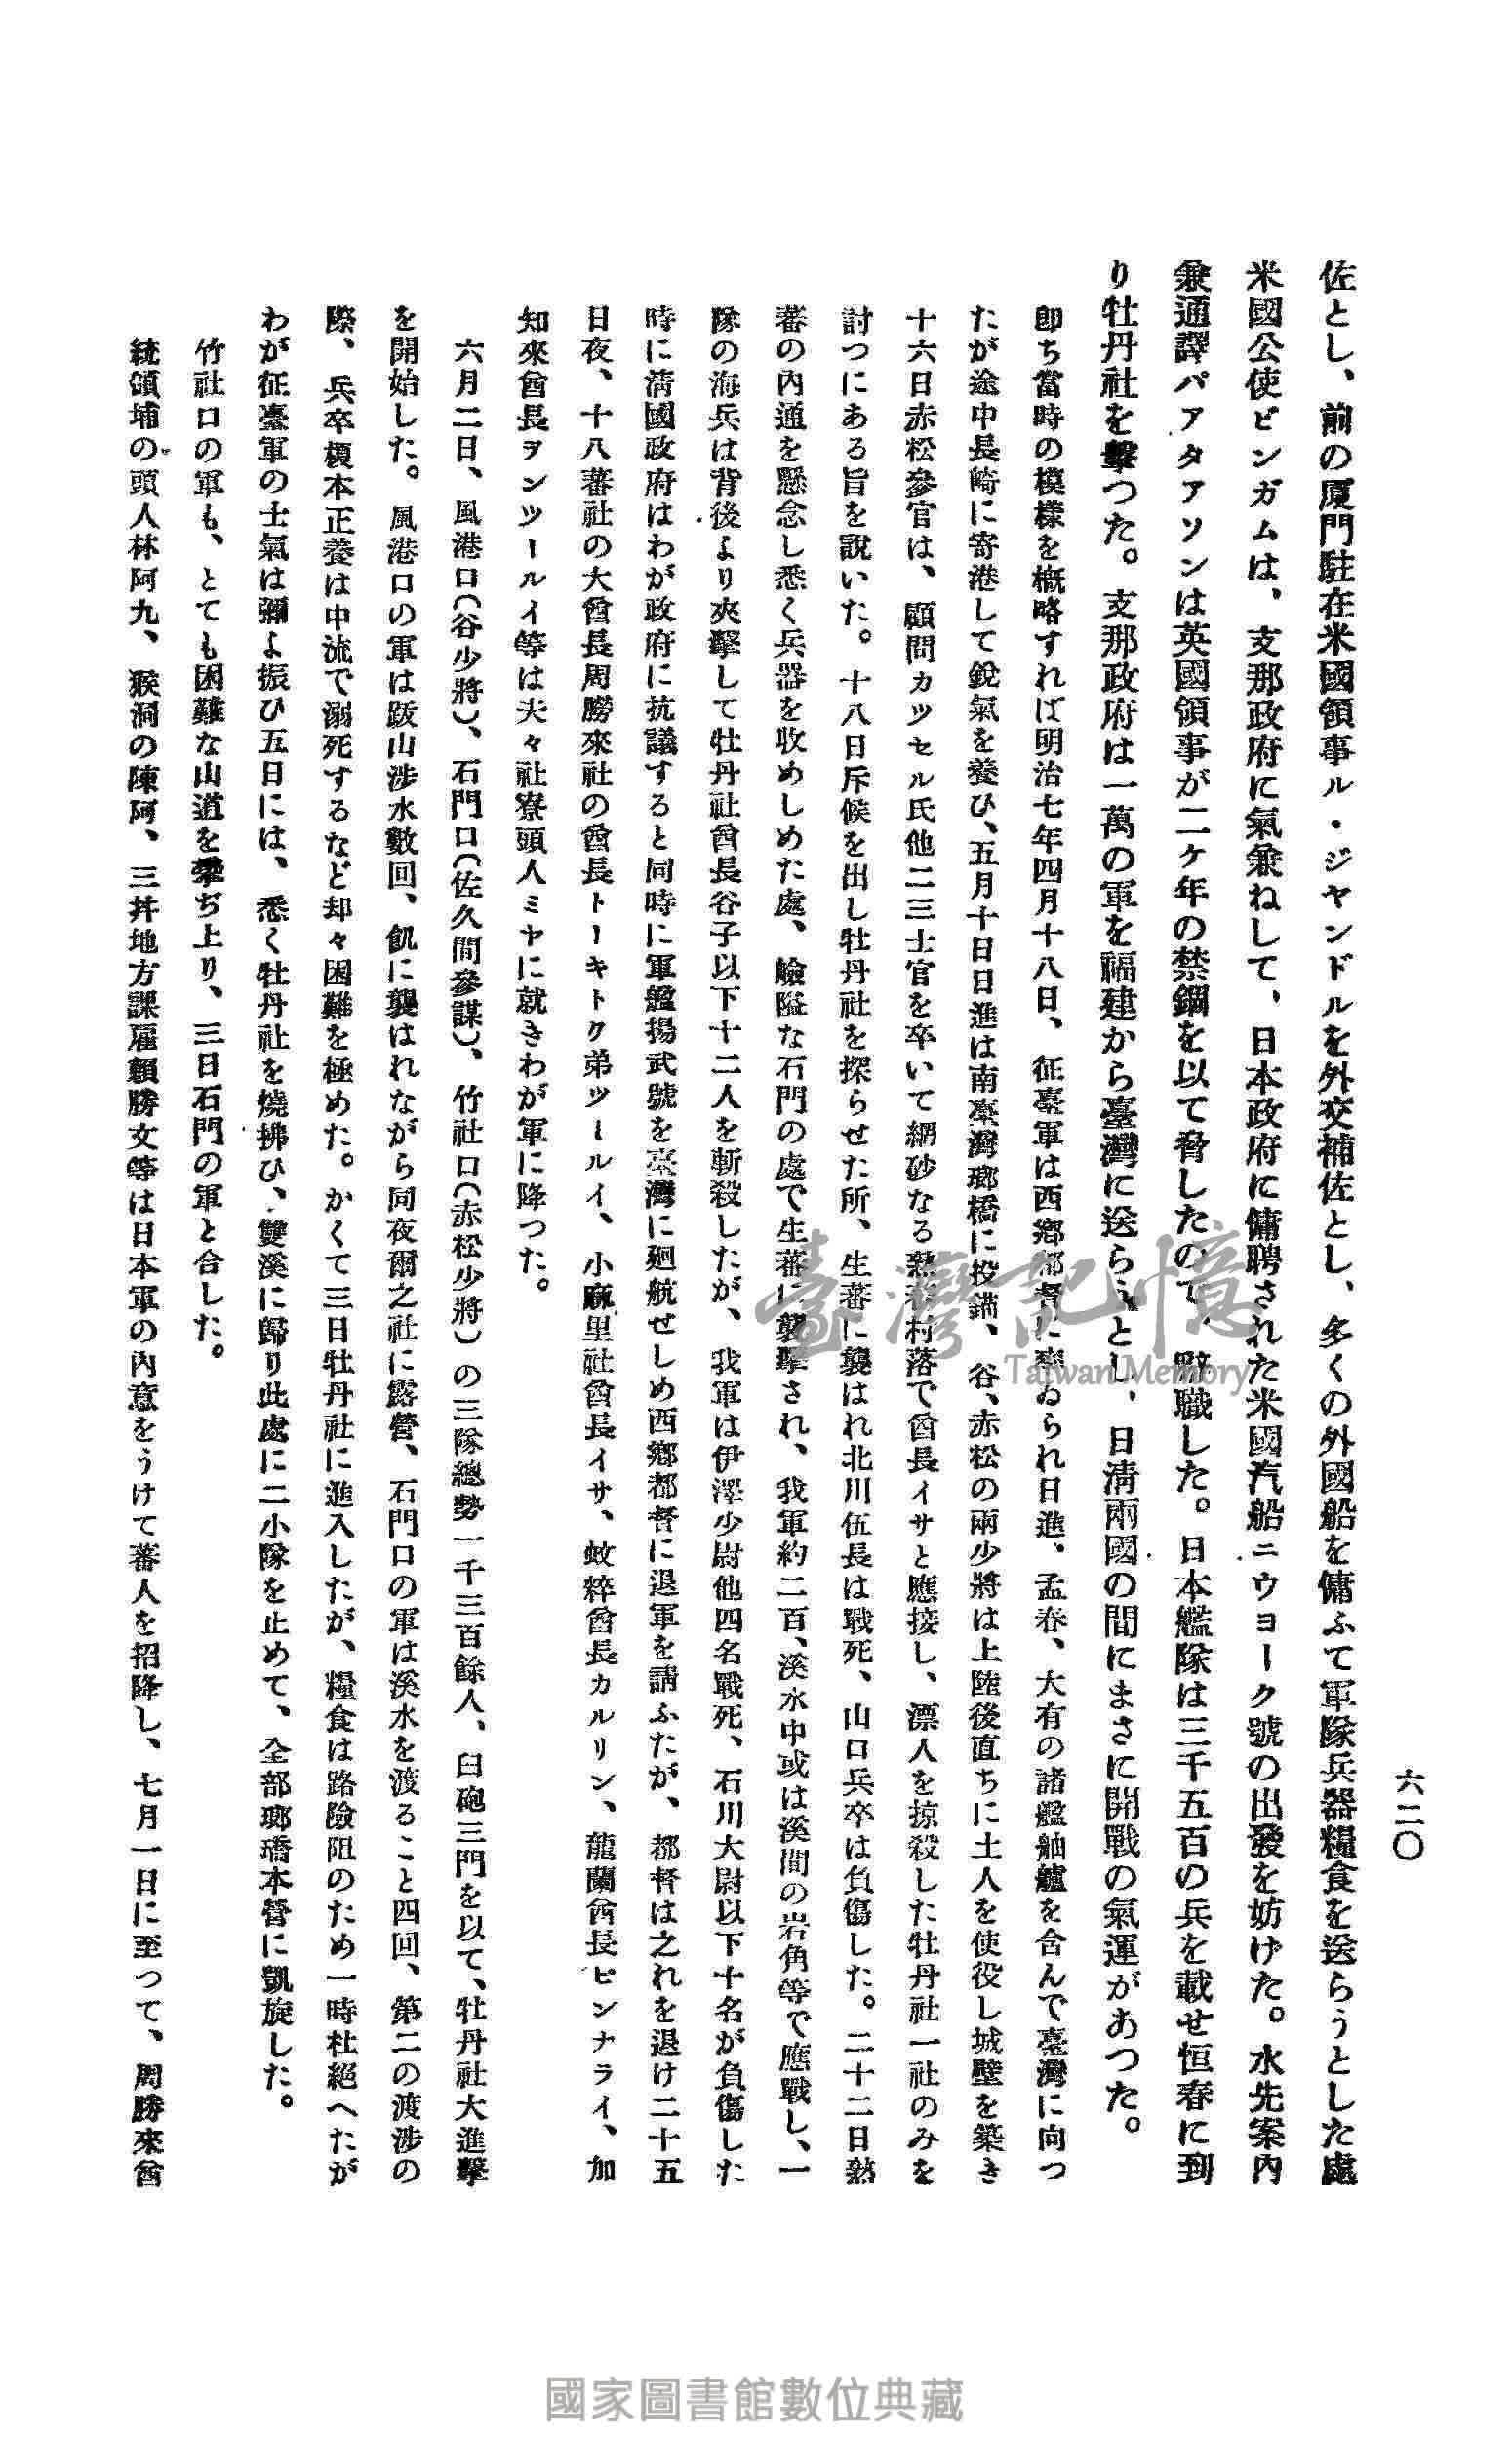 六二〇
佐とし、前の厦門駐在米國領事ル・ジヤンドルを外交補佐とし、多くの外國船を傭ふて軍隊兵器糧食を送らうとした處
米國公使ビンガムは、支那政府に氣兼ねして、日本政府に傭聘された米國汽船ニウヨーク號の出發を妨げた。水先案內
兼通譯パアタアソンは英國領事が二ケ年の禁錮を以て脅したので、辭職した。日本艦隊は三千五百の兵を載せ恒春に到
り牡丹社を擊つた。支那政府は一萬の軍を福建から臺灣に送らうとし、日淸兩國の間にまさに開戰の氣運があつた。
卽ち當時の模樣を槪略すれば明治七年四月十八日、征臺軍は西鄕都督に率ゐられ日進、孟春、大有の諸艦舳艫を含んで臺灣に向つ
たが途中長崎に寄港して銳氣を養ひ、五月十日日進は南臺灣瑯橋に投錨、谷、赤松の兩少將は上陸後直ちに土人を使役し城壁を築き
十六日赤松參官は、顧問カツセル氏他二三士官を卒いて綱砂なる熟蕃村落で酋長イサと應接し、漂人を掠殺した牡丹社一社のみを
討つにある旨を說いた。十八日斥候を出し牡丹社を探らせた所、生蕃に襲はれ北川伍長は戰死、山口兵卒は負傷した。二十二日熟
蕃の內通を懸念し悉く兵器を收めしめた處、嶮隘な石門の處で生蕃に襲擊され、我軍約二百、溪水中或は溪間の岩角等で應戰し、一
隊の海兵は背後より夾擊して牡丹社酋長谷子以下十二人を斬殺したが、我軍は伊澤少尉他四名戰死、石川大尉以下十名が負傷した
時に淸國政府はわが政府に抗議すると同時に軍艦揚武號を臺灣に廻航せしめ西鄕都督に退軍を請ふたが、都督は之れを退け二十五
日夜、十八蕃社の大酋長周勝來社の酋長トーキトク弟ツールイ、小麻里社酋長イサ、蚊粹酋長カルリン、龍蘭酋長ピンナライ、加
知來酋長ヲンツールイ等は夫々社寮頭人ミヤに就きわが軍に降つた。
六月二日、風港口(谷少將)、石門口(佐久間參謀)、竹社口(赤松少將)の三隊總勢一千三百餘人、臼砲三門を以て、牡丹社大進擊
を開始した。風港口の軍は跋山涉水數回、飢に襲はれながら同夜爾之社に露營、石門口の軍は溪水を渡ること四回、第二の渡涉の
際、兵卒榎本正養は中流で溺死するなど却々困難を極めた。かくて三日牡丹社に進入したが、糧食は路險阻のため一時杜絕へたが
わが征臺軍の士氣は彌よ振ひ五日には、悉く牡丹社を燒拂ひ、雙溪に歸り此處に二小隊を止めて、全部瑯璚本營に凱旋した。
竹社口の軍も、とても困難な山道を攀ぢ上り、三日石門の軍と合した。
統領埔の頭人林阿九、猴洞の陳阿、三丼地方課雇賴勝文等は日本軍の內意をうけて蕃人を招降し、七月一日に至つて、周勝來酋
臺灣記憶
Taiwan Memory
國家圖書館數位典藏